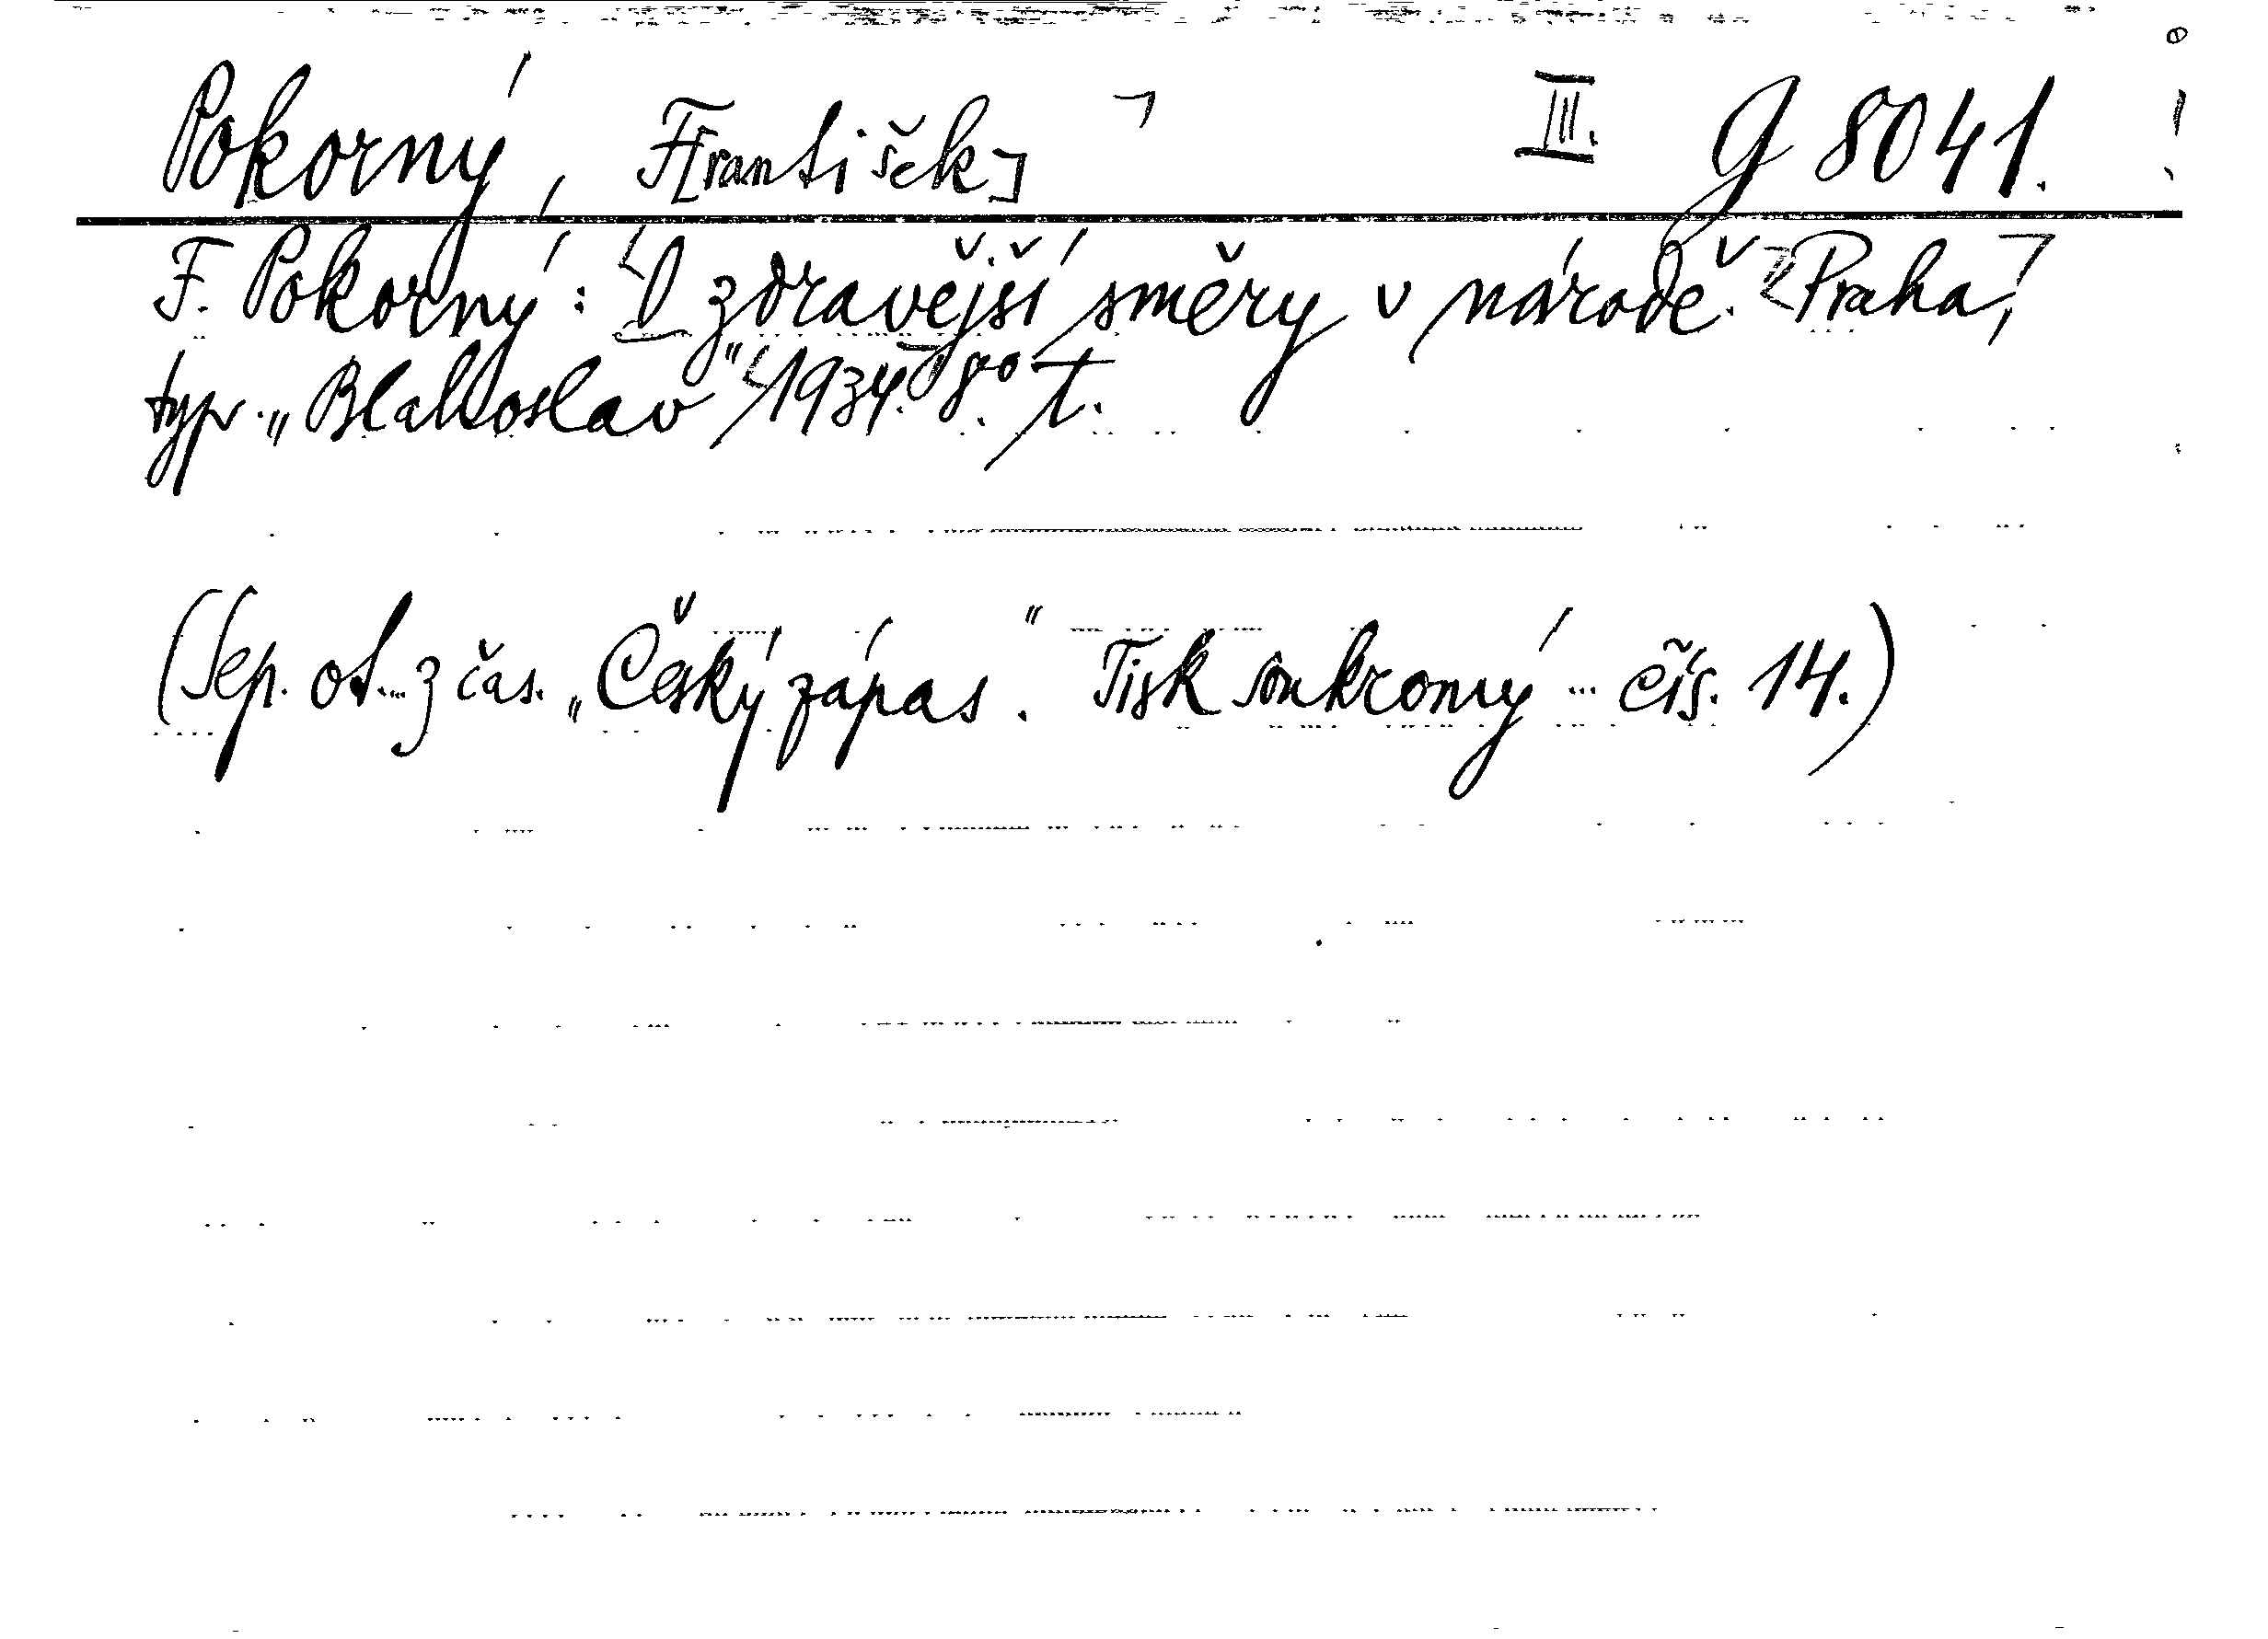 Pokorný, F[rantišek] III. G 8041.
F. Pokorný: O zdravější směry v národě. Praha,
typ. „Blahoslav" 1934. 8° T.
(Sep. ot... z čas. „Český zápas". Tisk soukromý ... čís. 14.)